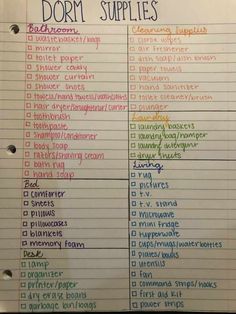 DORM SUPPLIES
Bathroom
wastebasket/bags
mirror
toilet paper
shower caddy
shower curtain
shower shoes
towels/hand towels/washcloths
hair dryer/straightener/curler
toothbrush
toothpaste
shampoo/conditioner
body soap
razors/shaving cream
bath rug
hand soap
Bed
comforter
sheets
pillows
pillowcases
blankets
memory foam
Desk
lamp
organizer
printer/paper
dry erase boards
garbage bin/bags
Cleaning Supplies
clorox wipes
air freshener
dish soap/dish brush
paper towels
vacuum
hand sanitizer
toilet cleaner/brush
plunger
Laundry
laundry baskets
laundry bag/hamper
laundry detergent
dryer sheets
Living
rug
pictures
t.v.
t.v. stand
microwave
mini fridge
tupperware
cups/mugs/water bottles
plates/bowls
utensils
fan
command strips/hooks
first aid kit
power strips